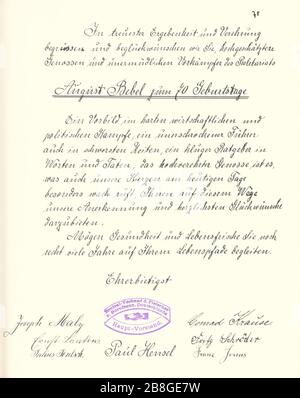 78
In treuster Ergebenheit und Verehrung
begrüssen und beglückwünschen wir Sie, hochgeschätzter
Genossen und unermüdlichen Vorkämpfer des Proletariats
August Bebel zum 70 Geburtstage
Ein Vorbild im harten wirtschaftlichen und
politischen Kampfe, ein unerschrockener Führer
auch in schweren Zeiten, ein kluger Ratgeber in
Worten und Taten, das hochverehrter Genosse, ist es,
was auch unsere Herzen am heutigen Tage
besonders wach ruft, Ihnen auf diesem Wege
unsere Anerkennung und herzlichsten Glückwünsche
darzubieten.
Mögen Gesundheit und Lebensfrische Sie noch
recht viele Jahre auf Ihrem Lebenspfade begleiten.
Ehrerbietigst
Haupt-Vorstand
Joseph Conrad Krause
Fritz Schröder
Paul Hensel Franz
alamy
Image ID: 2B8GE7W
www.alamy.com